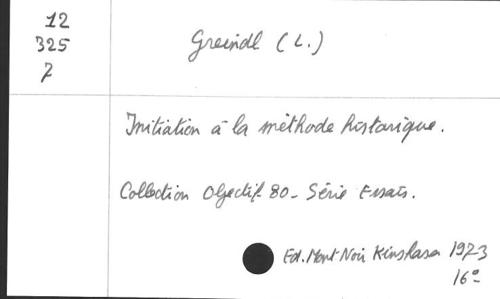 12
325
7
Greindl (L.)
Initiation à la méthode historique.
Collection Objectif 80 - Série Essais.
Ed. Mont Noir Kinshasa 1973
16°